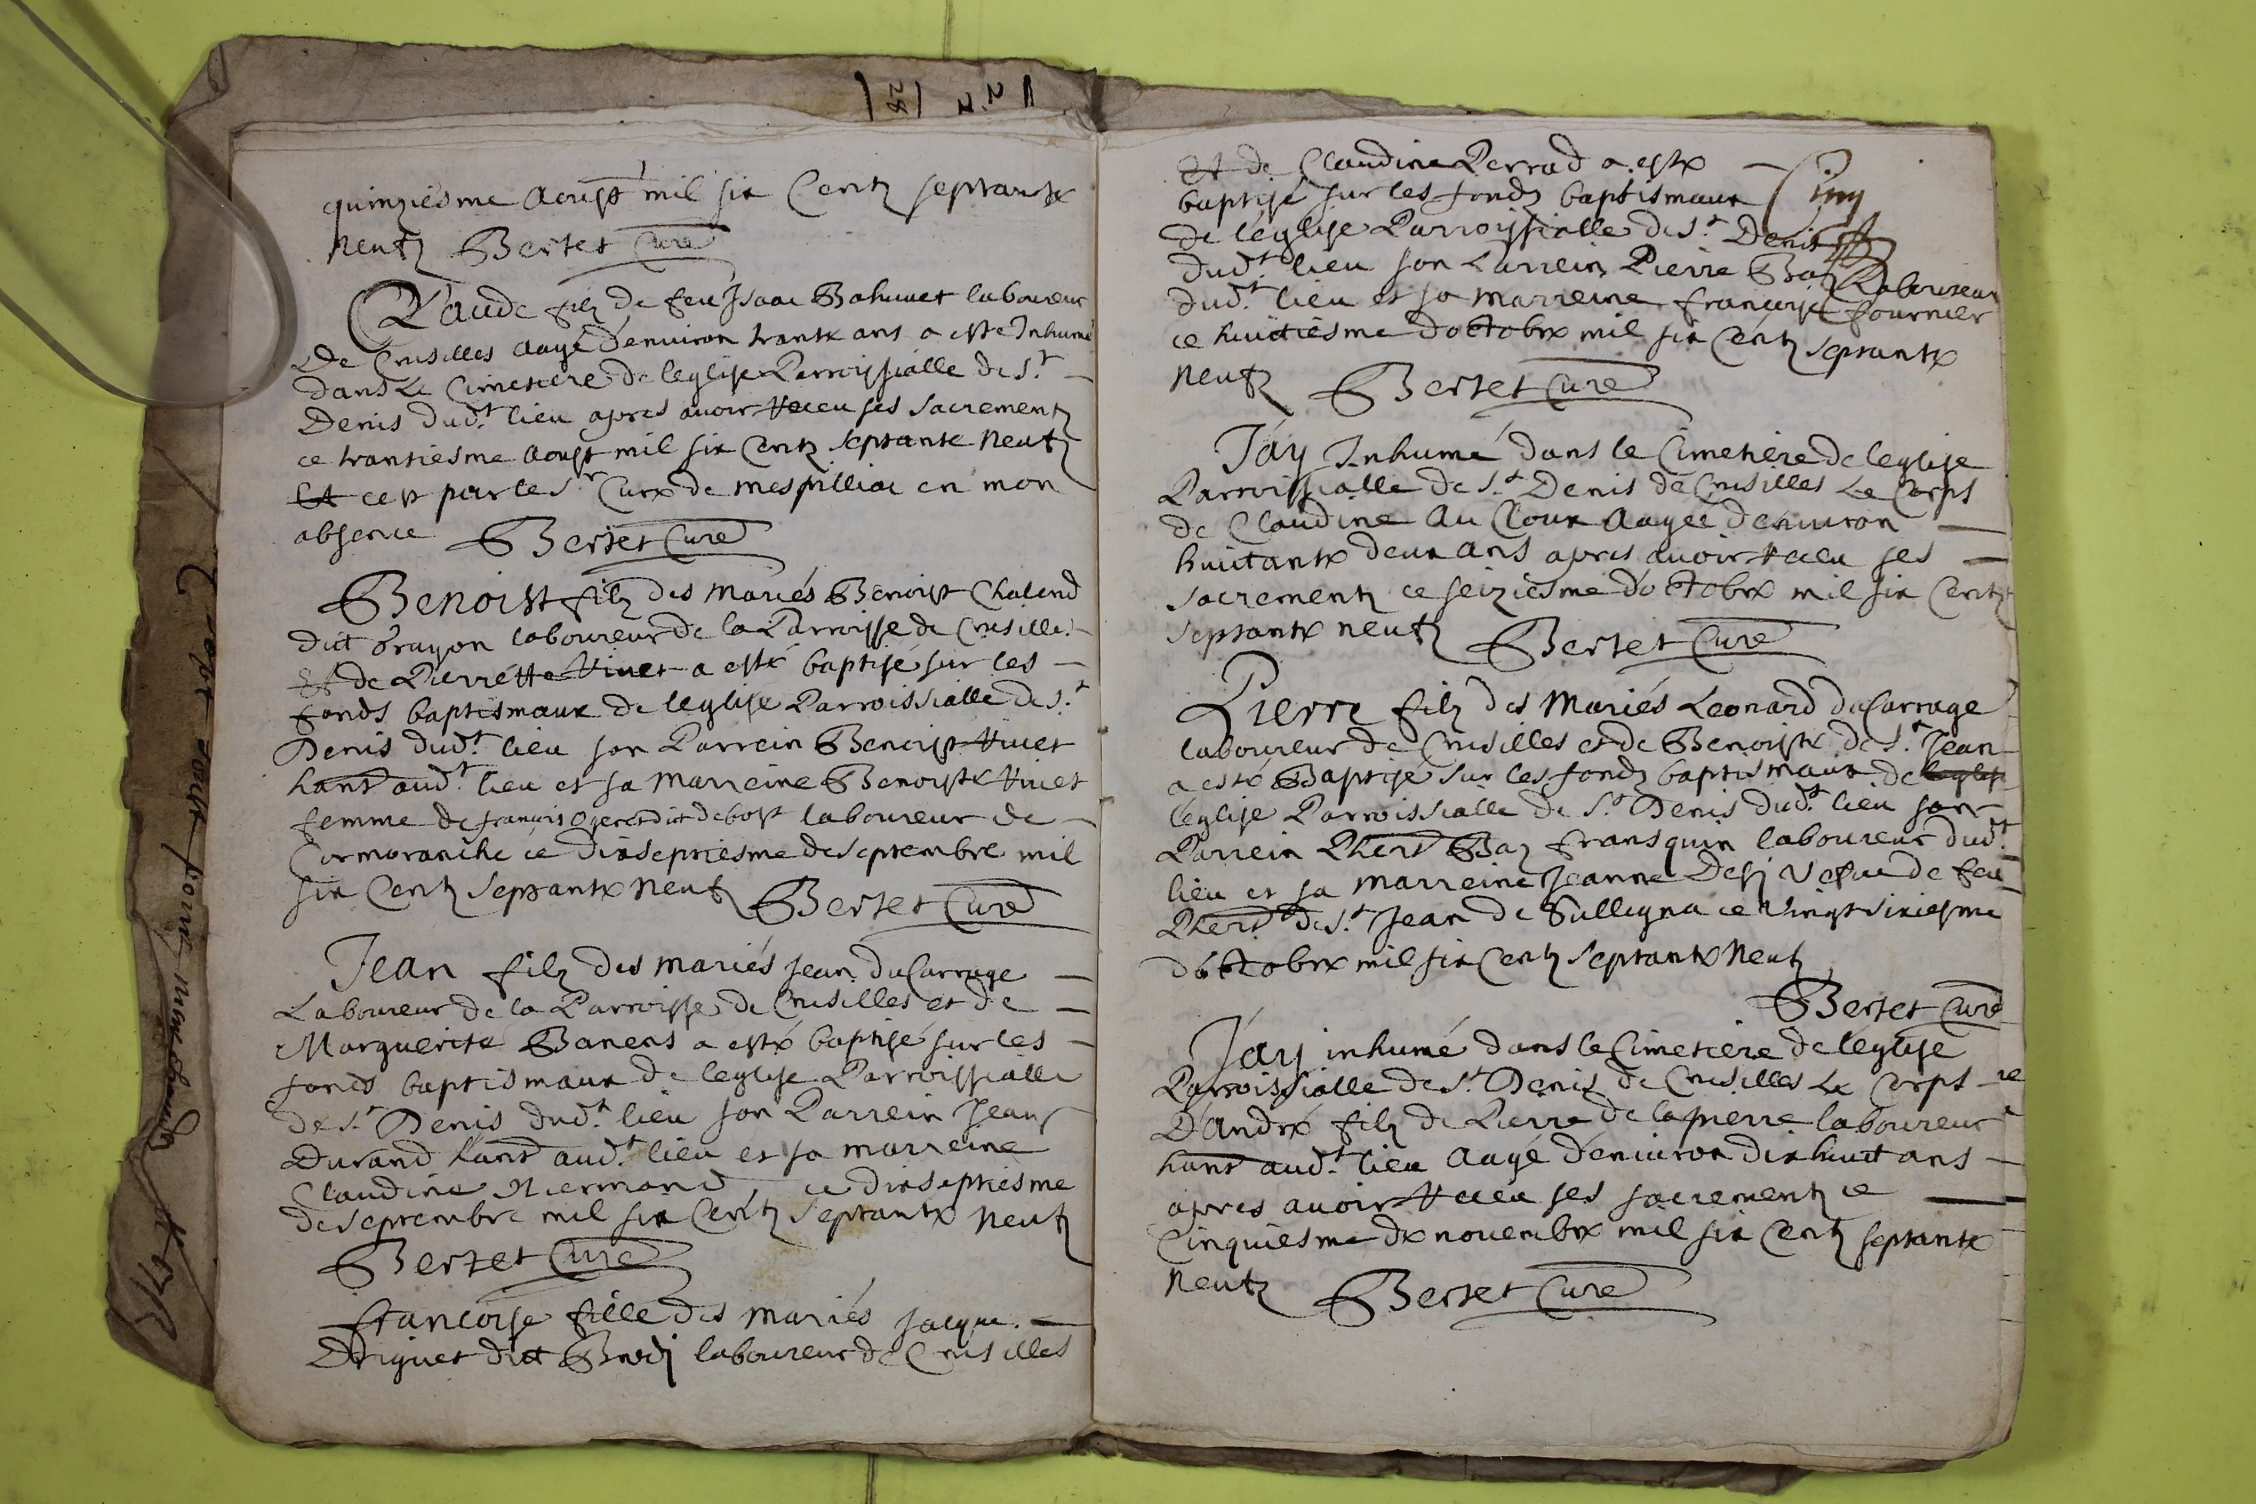 quinziesme aoust mil six Centz septante
neufz Bertet Curé
Claude filz de feu Isaac Bahuuet laboureur
De Crusilles aagé d'enuiron trante ans a esté Inhumé
dans Le Cimetiere de leglise Parroissialle de S.t
Denis dud.t lieu apres auoir receu ses sacrementz
ce trantiesme aoust mil six Centz septante neufz
Et ce par le s.r Curé de mespilliac en mon
absence Bertet Curé
Benoist filz des mariés Benoist Chaland
dict laboureur de la Parroisse de Crusille
Et de Pierrette Viuet a esté baptisé sur les
fonds baptismaux de leglise Parroissialle de S.t
Denis dud.t lieu son Parrein Benoist Viuet
hant aud.t lieu et sa Marreine Benoiste Viuet
femme de françois dict debost laboureur de
Cormoranche ce dixseptiesme de septembre mil
six Centz septante neufz Bertet Curé
Jean filz des mariés Jean duCarrage
Laboureur de la Parroisse de Crusilles et de
Marguerite Banens a esté baptisé sur les
fonds baptismaux de leglise Parroissialle
de S.t Denis dud.t lieu son Parrein Jean
Durand hant aud.t lieu et sa marreine
Claudine Niermond ce dixseptiesme
de septembre mil six Centz septante neufz
Bertet Curé
françoise fille des mariés Jacque
dict laboureur de Crusilles
Et de Claudine Perrad a esté
baptisé sur les fondz baptismaux
de l'eglise Parroissialle de S.t Denis
dud.t lieu son Parrein Pierre Baz Laboureur
dud.t lieu et sa marreine françoise fournier
ce huictiesme d'octobre mil six Centz septante
neufz Bertet Curé
J'ay Inhumé dans le Cimetiere de leglise
Parroissialle de S.t Denis de Crusilles Le Corps
de Claudine Au Cloux aagée d'enuiron
huictante deux ans apres auoir receu ses
sacrementz ce seiziesme d'octobre mil six Centz
septante neufz Bertet Curé
Pierre filz des Mariés Leonard duCarrage
laboureur de Crusilles et de Benoiste de S.t Jean
a esté Baptisé sur les fondz baptismaux de leglise
l'eglise Parroissialle de S.t Denis dud.t lieu son
Parrein Phert Baz fransquin laboureur dud.t
lieu et sa marreine Jeanne vefue de feu
Phert de S.t Jean de Sulligna ce vingtsixiesme
d'octobre mil six Centz septante neufz
Bertet Curé
J'ay inhumé dans le Cimetiere de l'eglise
Parroissialle de S.t Denis de Crusilles Le Corps
D'André filz de Pierre de lapierre laboureur
hant aud.t lieu aagé d'enuiron dixhuict ans
apres auoir receu ses sacrementz ce
Cinquiesme de nouembre mil six Centz septante
neufz Bertet Curé